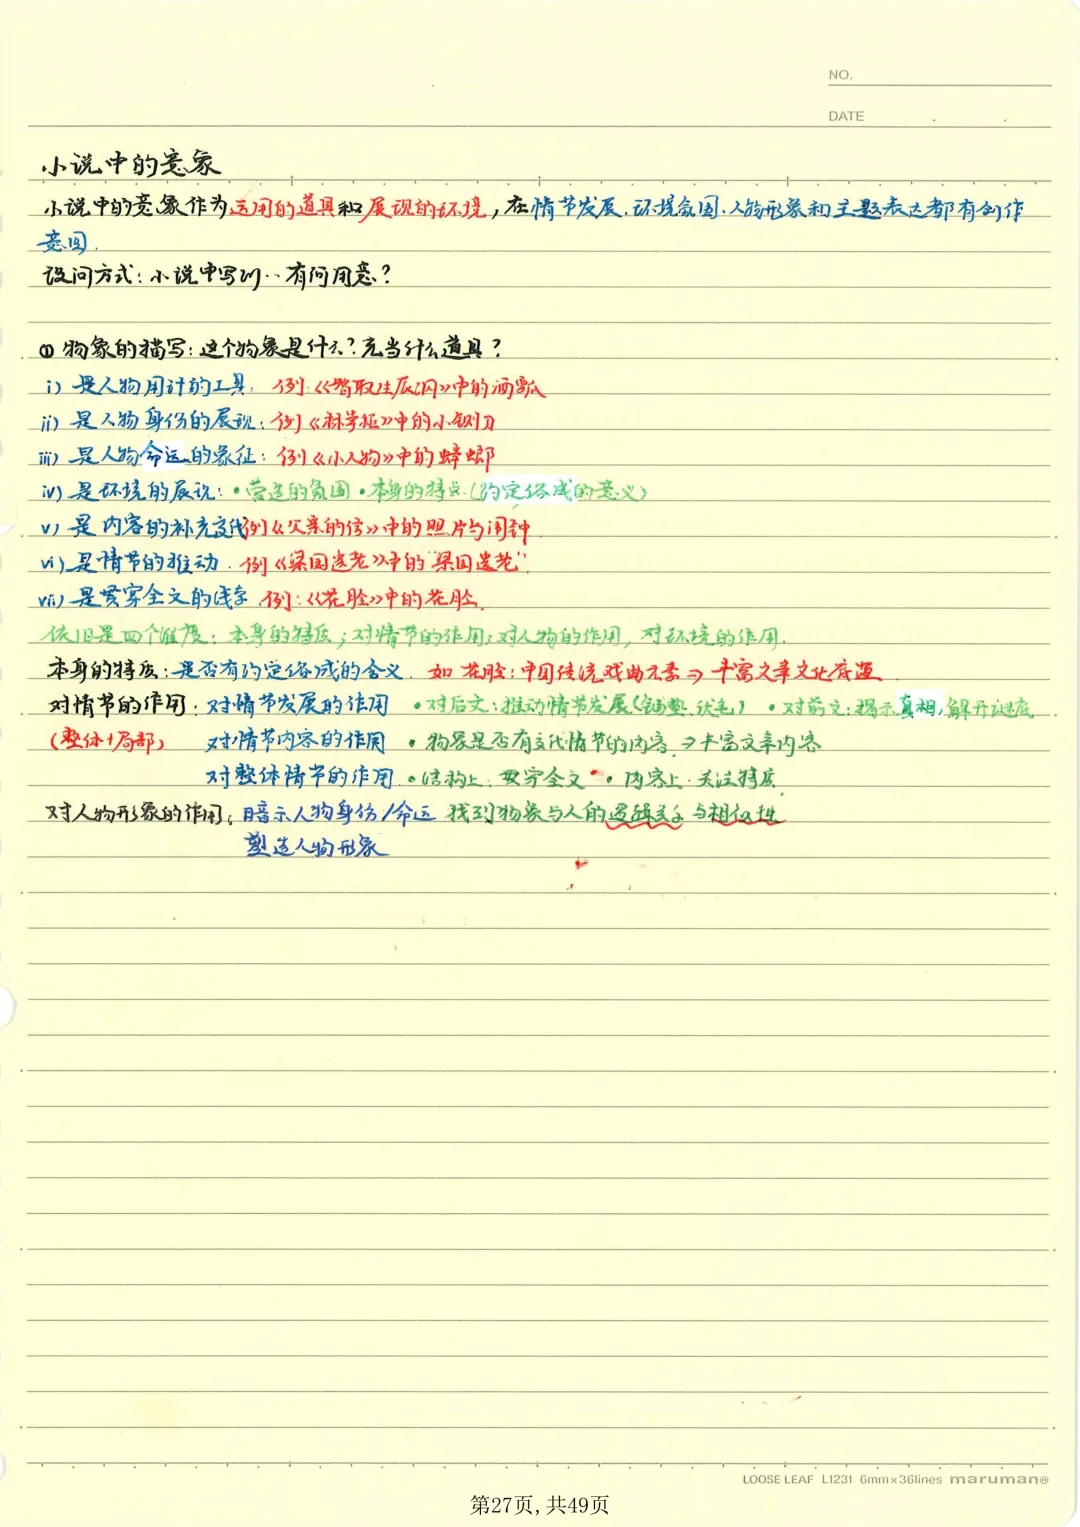 NO.
DATE
小说中的意象
小说中的意象作为运用的道具和展现的环境,在情节发展、环境氛围、人物形象和主题表达都有创作
意图.
设问方式:小说中写到··有何用意?
① 物象的描写:这个物象是什么?充当什么道具?
i) 是人物用计的工具. 例:《智取生辰冈》中的酒瓢
ii) 是人物身份的展现:例《林学姐》中的小铡刀
iii) 是人物命运的象征:例《小人物》中的蟑螂
iv) 是环境的展现:·营造的氛围·本身的特点(约定俗成的意义)
v) 是内容的补充交代例《父亲的信》中的照片与闹钟
vi) 是情节的推动. 例《梁园遗老》中的"梁园遗老"
vii) 是贯穿全文的线索.例:《花脸》中的花脸.
依旧是四个维度:本身的特质;对情节的作用;对人物的作用,对环境的作用.
本身的特质:是否有约定俗成的含义. 如 花脸:中国传统戏曲元素⇒丰富文章文化底蕴
对情节的作用. 对情节发展的作用 ·对后文:推动情节发展(铺垫、伏笔) ·对前文:揭示真相,解开谜底
(整体+局部) 对情节内容的作用 ·物象是否有交代情节的内容.⇒丰富文章内容
对整体情节的作用.·结构上.贯穿全文·内容上.关注特质
对人物形象的作用:暗示人物身份/命运 找到物象与人的逻辑关系与相似性
塑造人物形象
LOOSE LEAF L1231 6mm×36lines maruman®
第27页,共49页